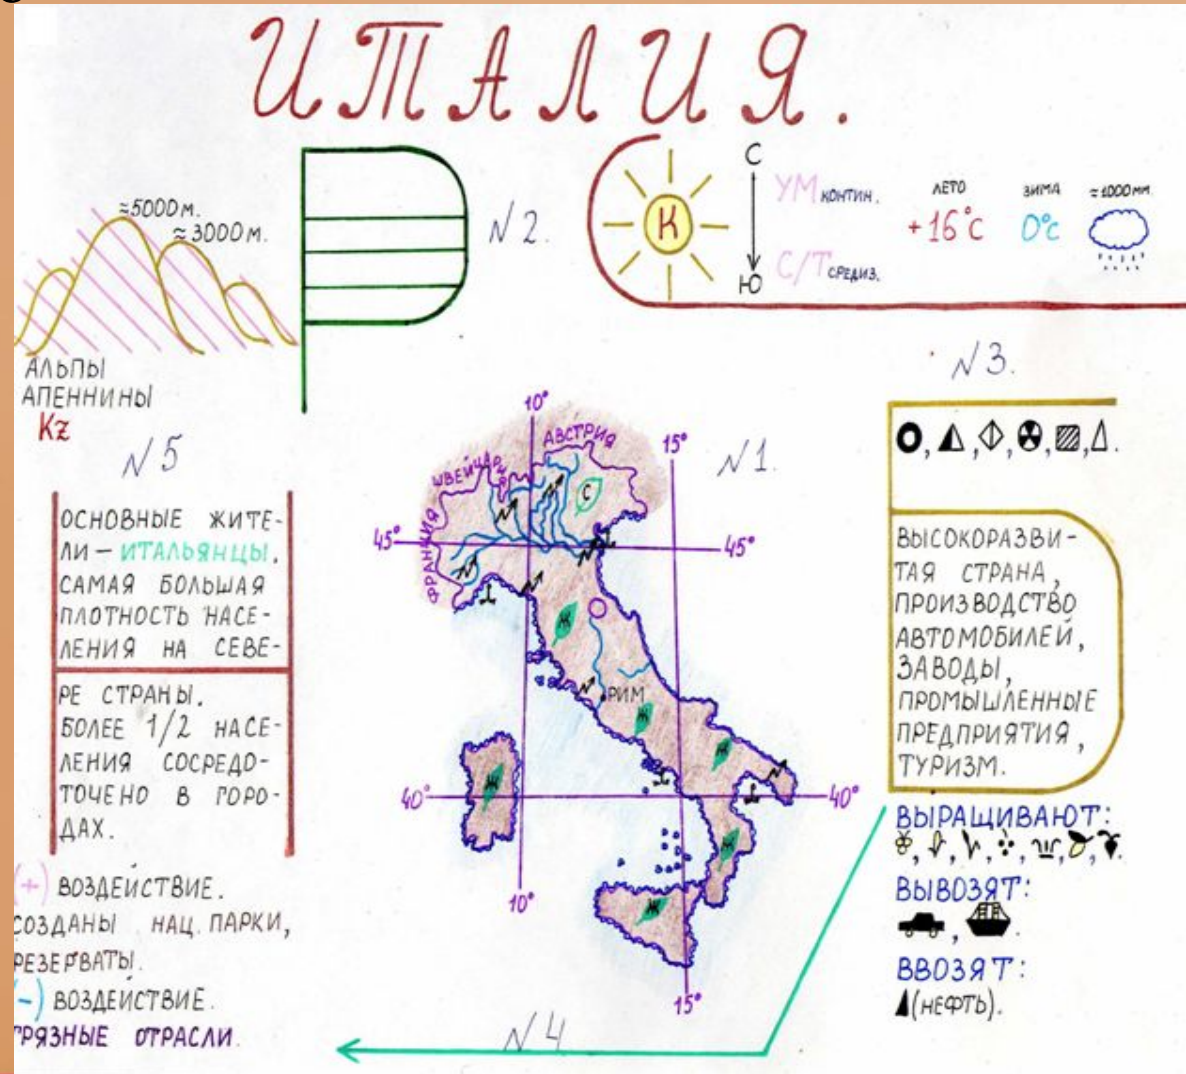 ИТАЛИЯ.
≈5000 м.
≈3000 м.
АЛЬПЫ
АПЕННИНЫ
Kz
N2.
К
С
Ю
УМ КОНТИН.
С/Т СРЕДИЗ.
ЛЕТО
+16°С
ЗИМА
0°С
≈1000 ММ.
N3.
N5
ОСНОВНЫЕ ЖИТЕ-
ЛИ – ИТАЛЬЯНЦЫ.
САМАЯ БОЛЬШАЯ
ПЛОТНОСТЬ НАСЕ-
ЛЕНИЯ НА СЕВЕ-
РЕ СТРАНЫ.
БОЛЕЕ 1/2 НАСЕ-
ЛЕНИЯ СОСРЕДО-
ТОЧЕНО В ГОРО-
ДАХ.
(+) ВОЗДЕЙСТВИЕ.
СОЗДАНЫ НАЦ. ПАРКИ,
РЕЗЕРВАТЫ.
(-) ВОЗДЕЙСТВИЕ.
ГРЯЗНЫЕ ОТРАСЛИ.
N1.
10°
15°
АВСТРИЯ
ШВЕЙЦАРИЯ
ФРАНЦИЯ
С
45°
45°
Ж
РИМ
Ж
Ж
Ж
40°
40°
Ж
Ж
10°
15°
N4
ВЫСОКОРАЗВИ-
ТАЯ СТРАНА,
ПРОИЗВОДСТВО
АВТОМОБИЛЕЙ,
ЗАВОДЫ,
ПРОМЫШЛЕННЫЕ
ПРЕДПРИЯТИЯ,
ТУРИЗМ.
ВЫРАЩИВАЮТ:
ВЫВОЗЯТ:
ВВОЗЯТ:
(НЕФТЬ).